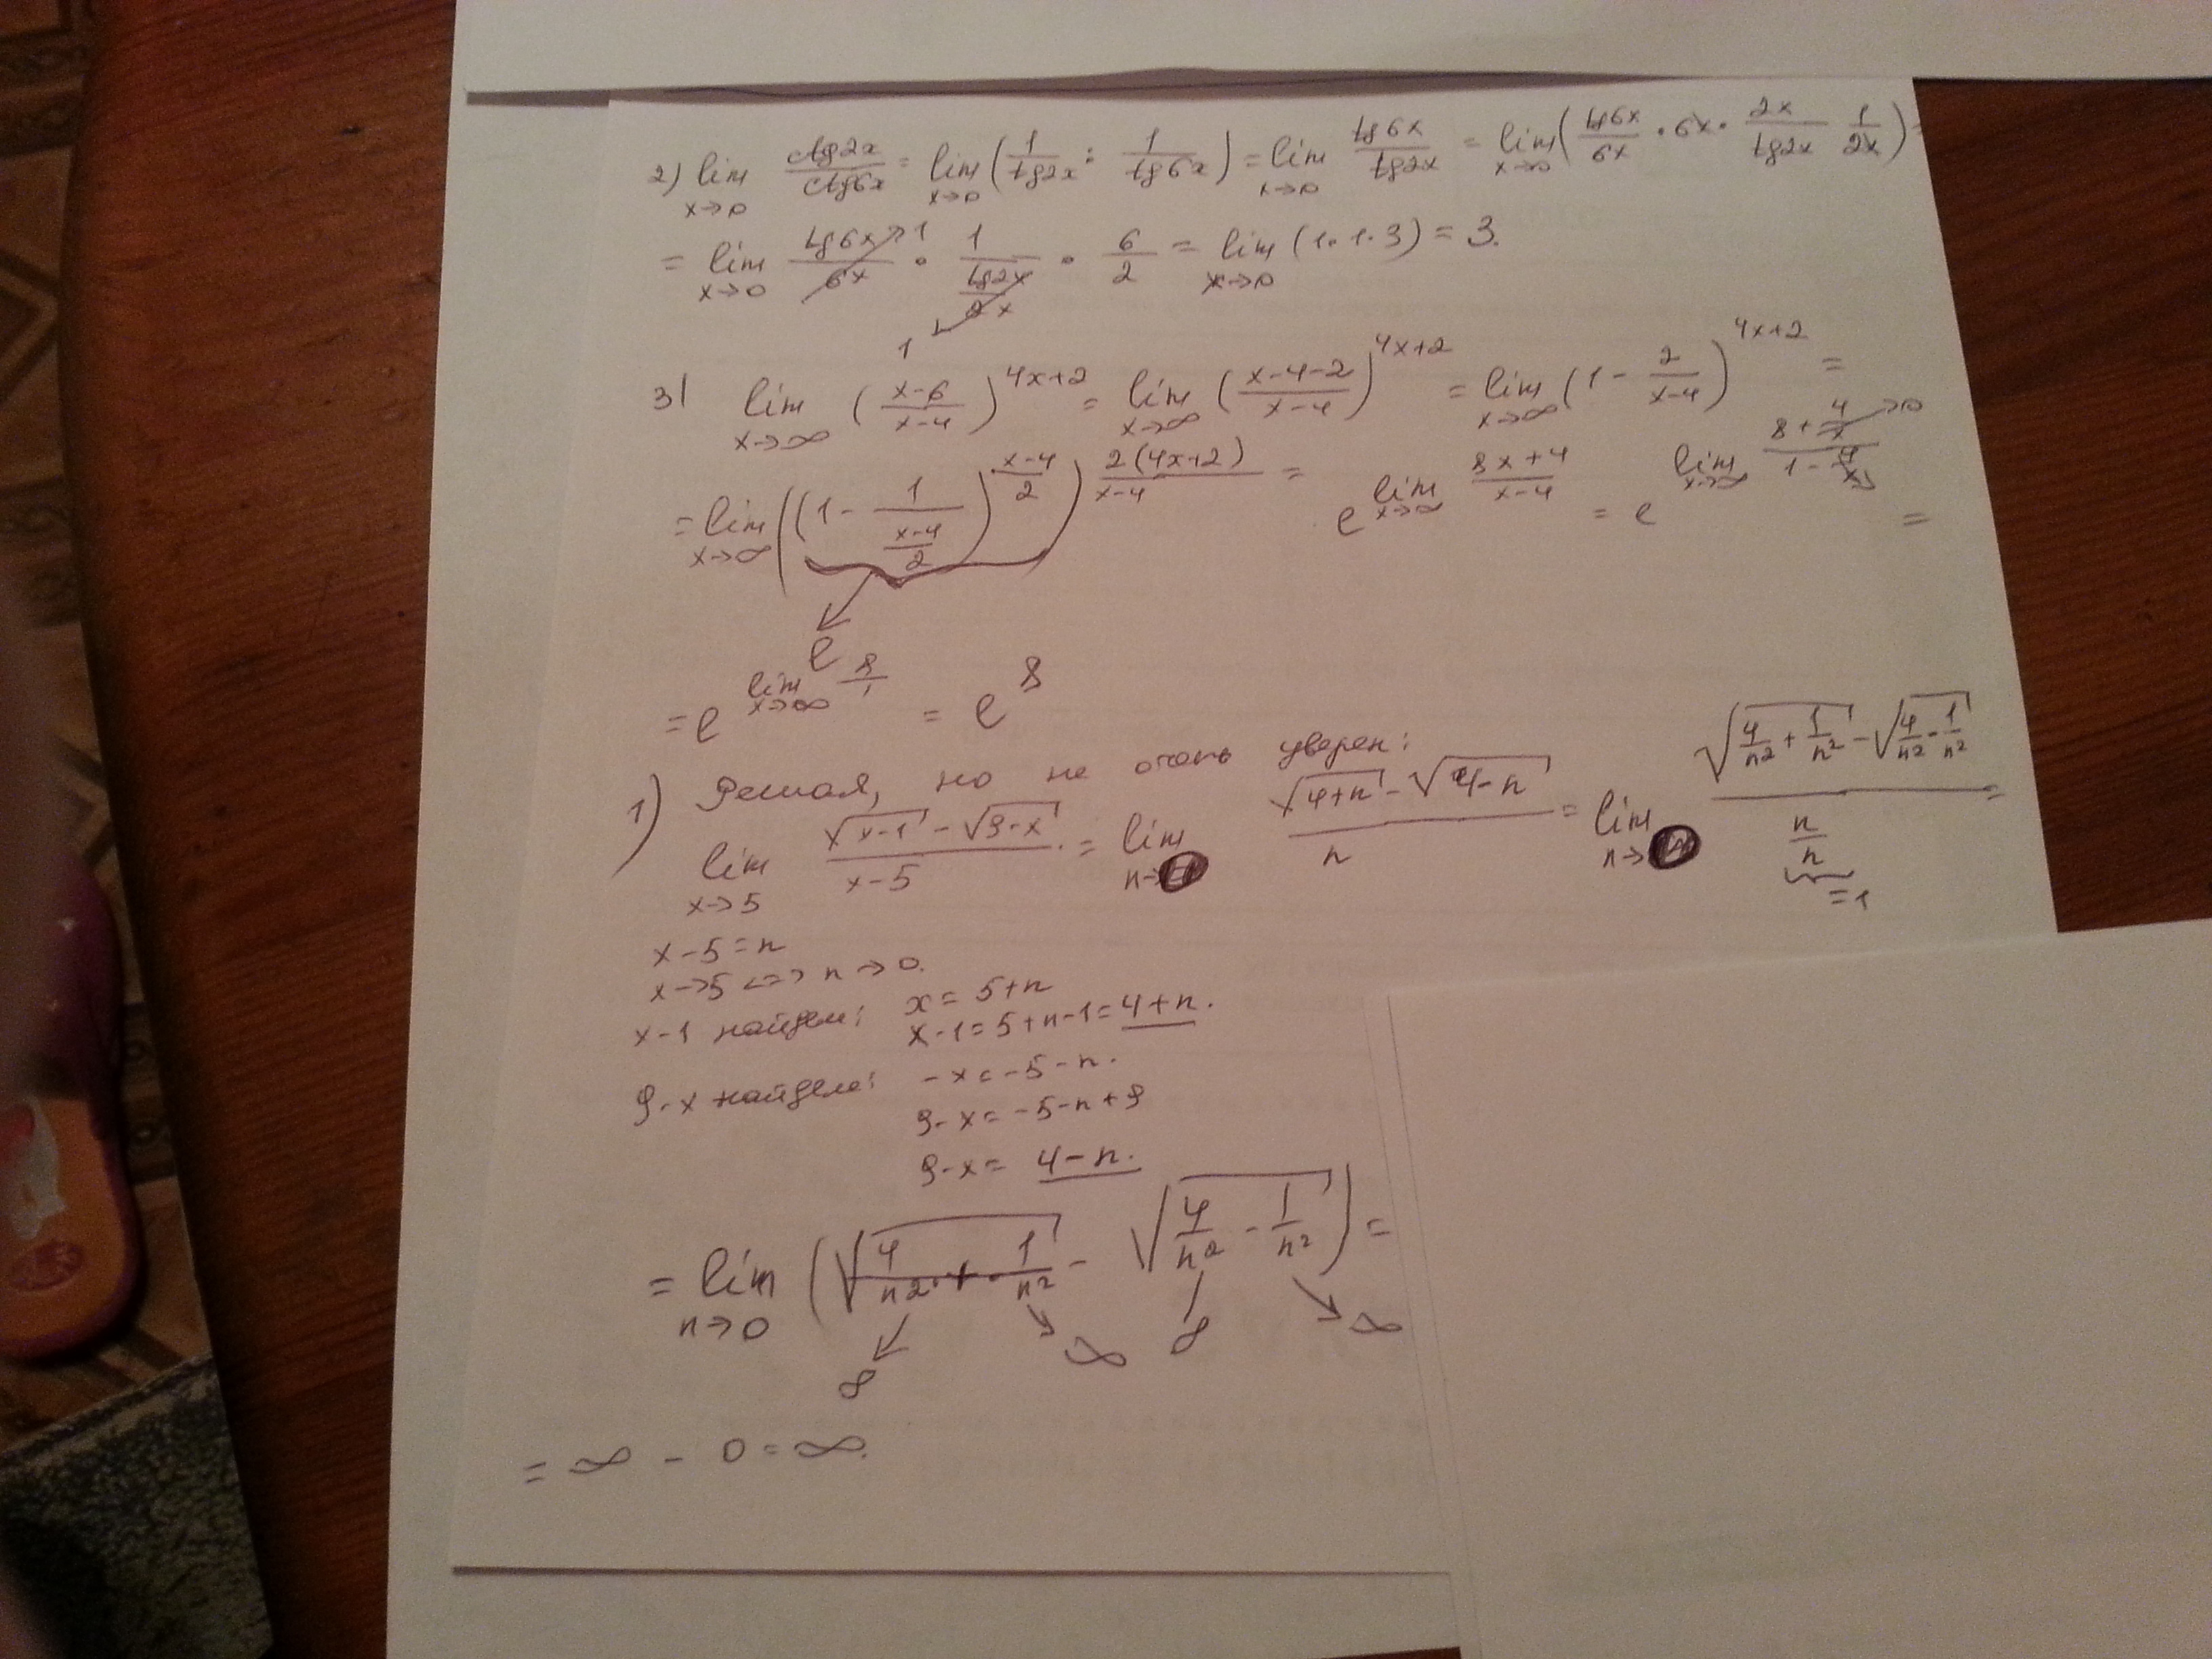 2) lim x→0 ctg2x/ctg6x = lim x→0 (1/tg2x : 1/tg6x) = lim x→0 tg6x/tg2x = lim x→0 (tg6x/6x · 6x · 2x/tg2x 1/2x) =
= lim x→0 tg6x/6x →1 · 1/(tg2x/2x) · 6/2 = lim x→0 (1·1·3) = 3.
1
3) lim x→∞ ((x-6)/(x-4))^(4x+2) = lim x→∞ ((x-4-2)/(x-4))^(4x+2) = lim x→∞ (1 - 2/(x-4))^(4x+2) =
= lim x→∞ ((1 - 1/((x-4)/2))^((x-4)/2))^(2(4x+2)/(x-4)) = e^(lim x→∞ (8x+4)/(x-4)) = e^(lim x→∞ (8+4/x →0)/(1-4/x)) =
e
= e^(lim x→∞ 8/1) = e^8
1) Решал, но не очень уверен:
lim x→5 (√(x-1) - √(9-x))/(x-5) = lim n→ (√(4+n) - √(4-n))/n = lim n→ (√(4/n² + 1/n²) - √(4/n² - 1/n²))/(n/n) =
=1
x-5=n
x→5 <=> n→0.
x-1 найдем: x=5+n
x-1=5+n-1=4+n.
9-x найдем: -x=-5-n.
9-x=-5-n+9
9-x= 4-n.
= lim n→0 (√(4/n² + 1/n²) - √(4/n² - 1/n²)) =
∞ ∞ ∞ ∞
= ∞ - 0 = ∞.